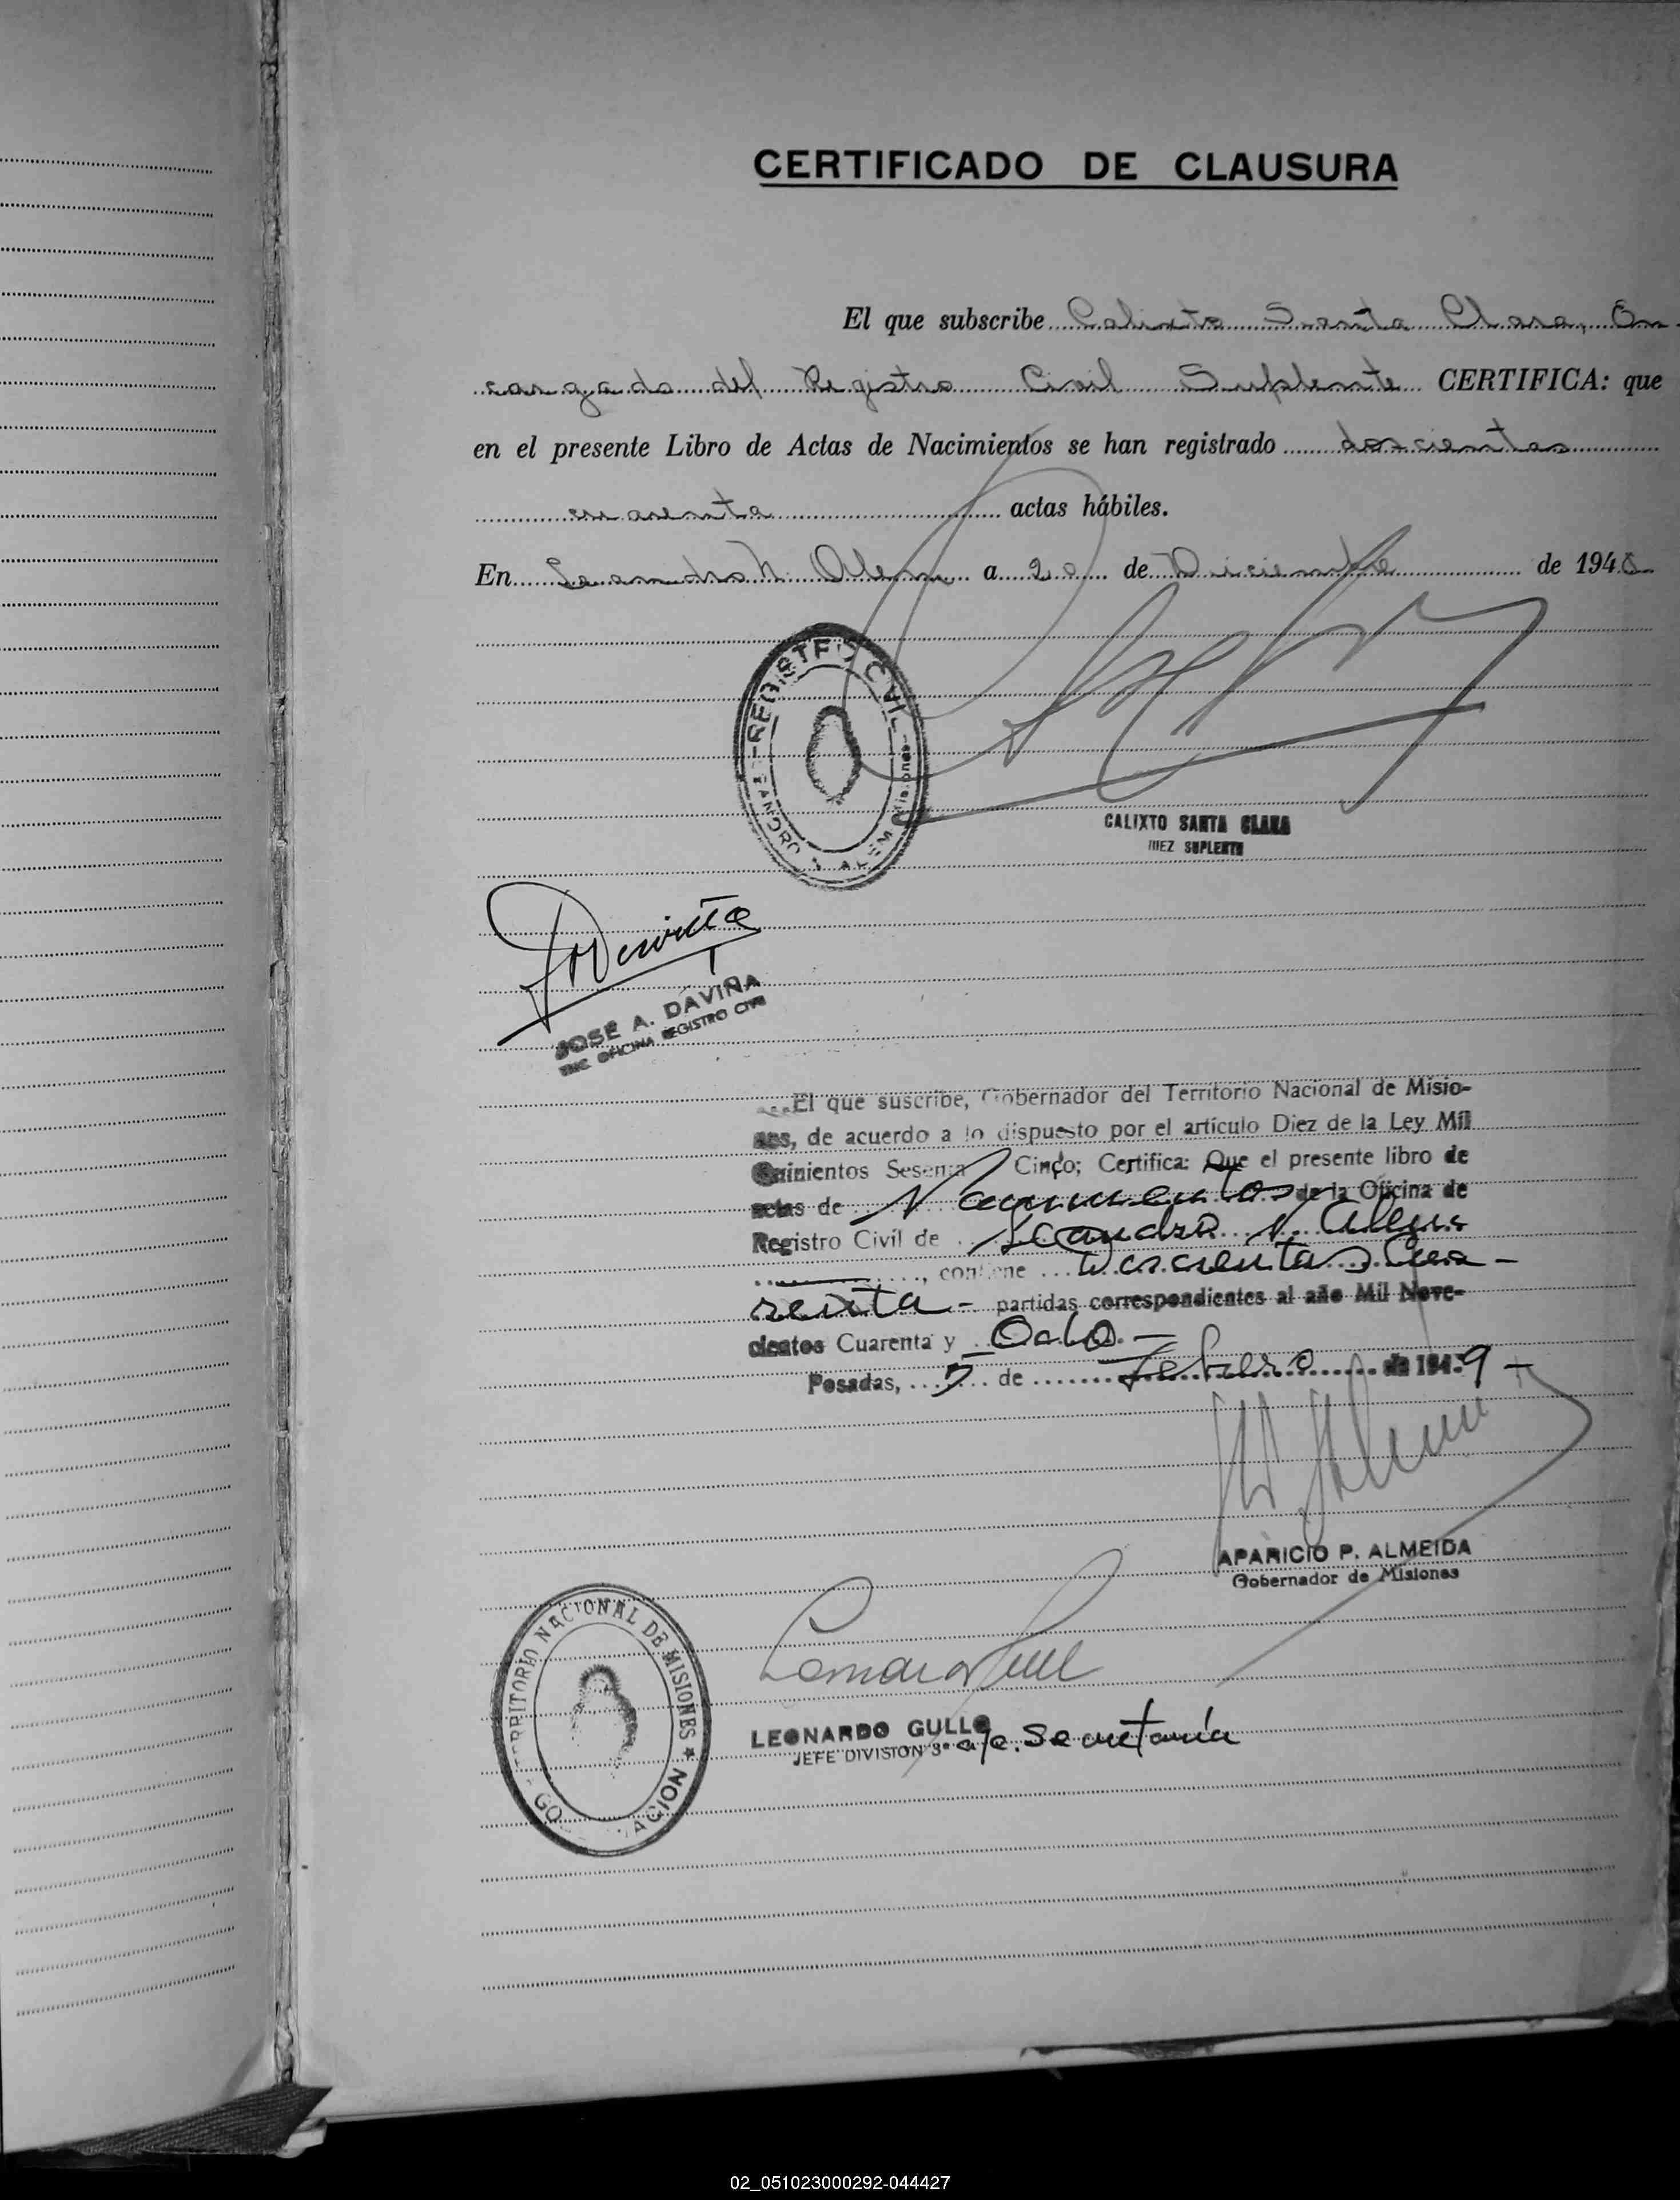 CERTIFICADO DE CLAUSURA
El que subscribe Calixto Santa Clara, En-
cargado del Registro Civil Suplente CERTIFICA: que
en el presente Libro de Actas de Nacimientos se han registrado doscientos
cuarenta actas hábiles.
En Leandro N. Alem a 20 de Diciembre de 1948
REGISTRO CIVIL
LEANDRO N. ALEM Misiones
CALIXTO SANTA CLARA
JUEZ SUPLENTE
JOSÉ A. DAVIÑA
OFICINA REGISTRO CIVIL
El que suscribe, Gobernador del Territorio Nacional de Misio-
nes, de acuerdo a lo dispuesto por el artículo Diez de la Ley Mil
Quinientos Sesenta y Cinco; Certifica: Que el presente libro de
actas de Nacimientos de la Oficina de
Registro Civil de Leandro N. Alem
, contiene Doscientas Cua-
renta - partidas correspondientes al año Mil Nove-
cientos Cuarenta y Ocho. -
Posadas, 5 de Febrero de 1949 -
APARICIO P. ALMEIDA
Gobernador de Misiones
GOBERNACION TERRITORIO NACIONAL DE MISIONES ★
LEONARDO GULLO
JEFE DIVISION 3ª a/c. Secretaría
02_051023000292-044427